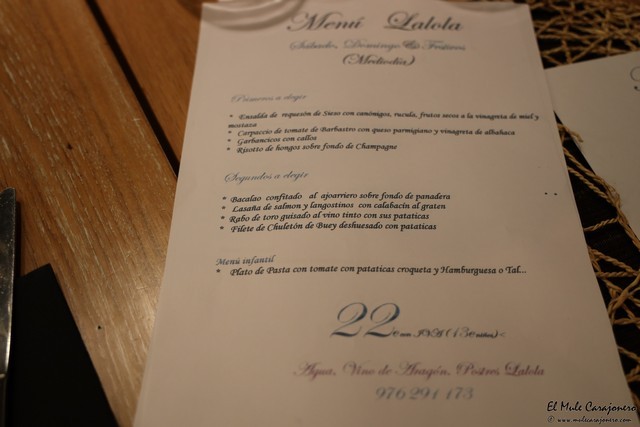 Menú Lalola
Sábado, Domingo & Festivos
(Mediodía)
Primeros a elegir
* Ensalda de requesón de Sieso con canónigos, rucula, frutos secos a la vinagreta de miel y
mostaza
* Carpaccio de tomate de Barbastro con queso parmigiano y vinagreta de albahaca
* Garbancicos con callos
* Risotto de hongos sobre fondo de Champagne
Segundos a elegir
* Bacalao confitado al ajoarriero sobre fondo de panadera
* Lasaña de salmon y langostinos con calabacín al graten
* Rabo de toro guisado al vino tinto con sus pataticas
* Filete de Chuletón de Buey deshuesado con pataticas
Menú infantil
* Plato de Pasta con tomate con pataticas croqueta y Hamburguesa o Tal...
22e con IVA (13e niños)
Agua, Vino de Aragón, Postres Lalola
976 291 173
El Mule Carajonero
© www.mulecarajonero.com